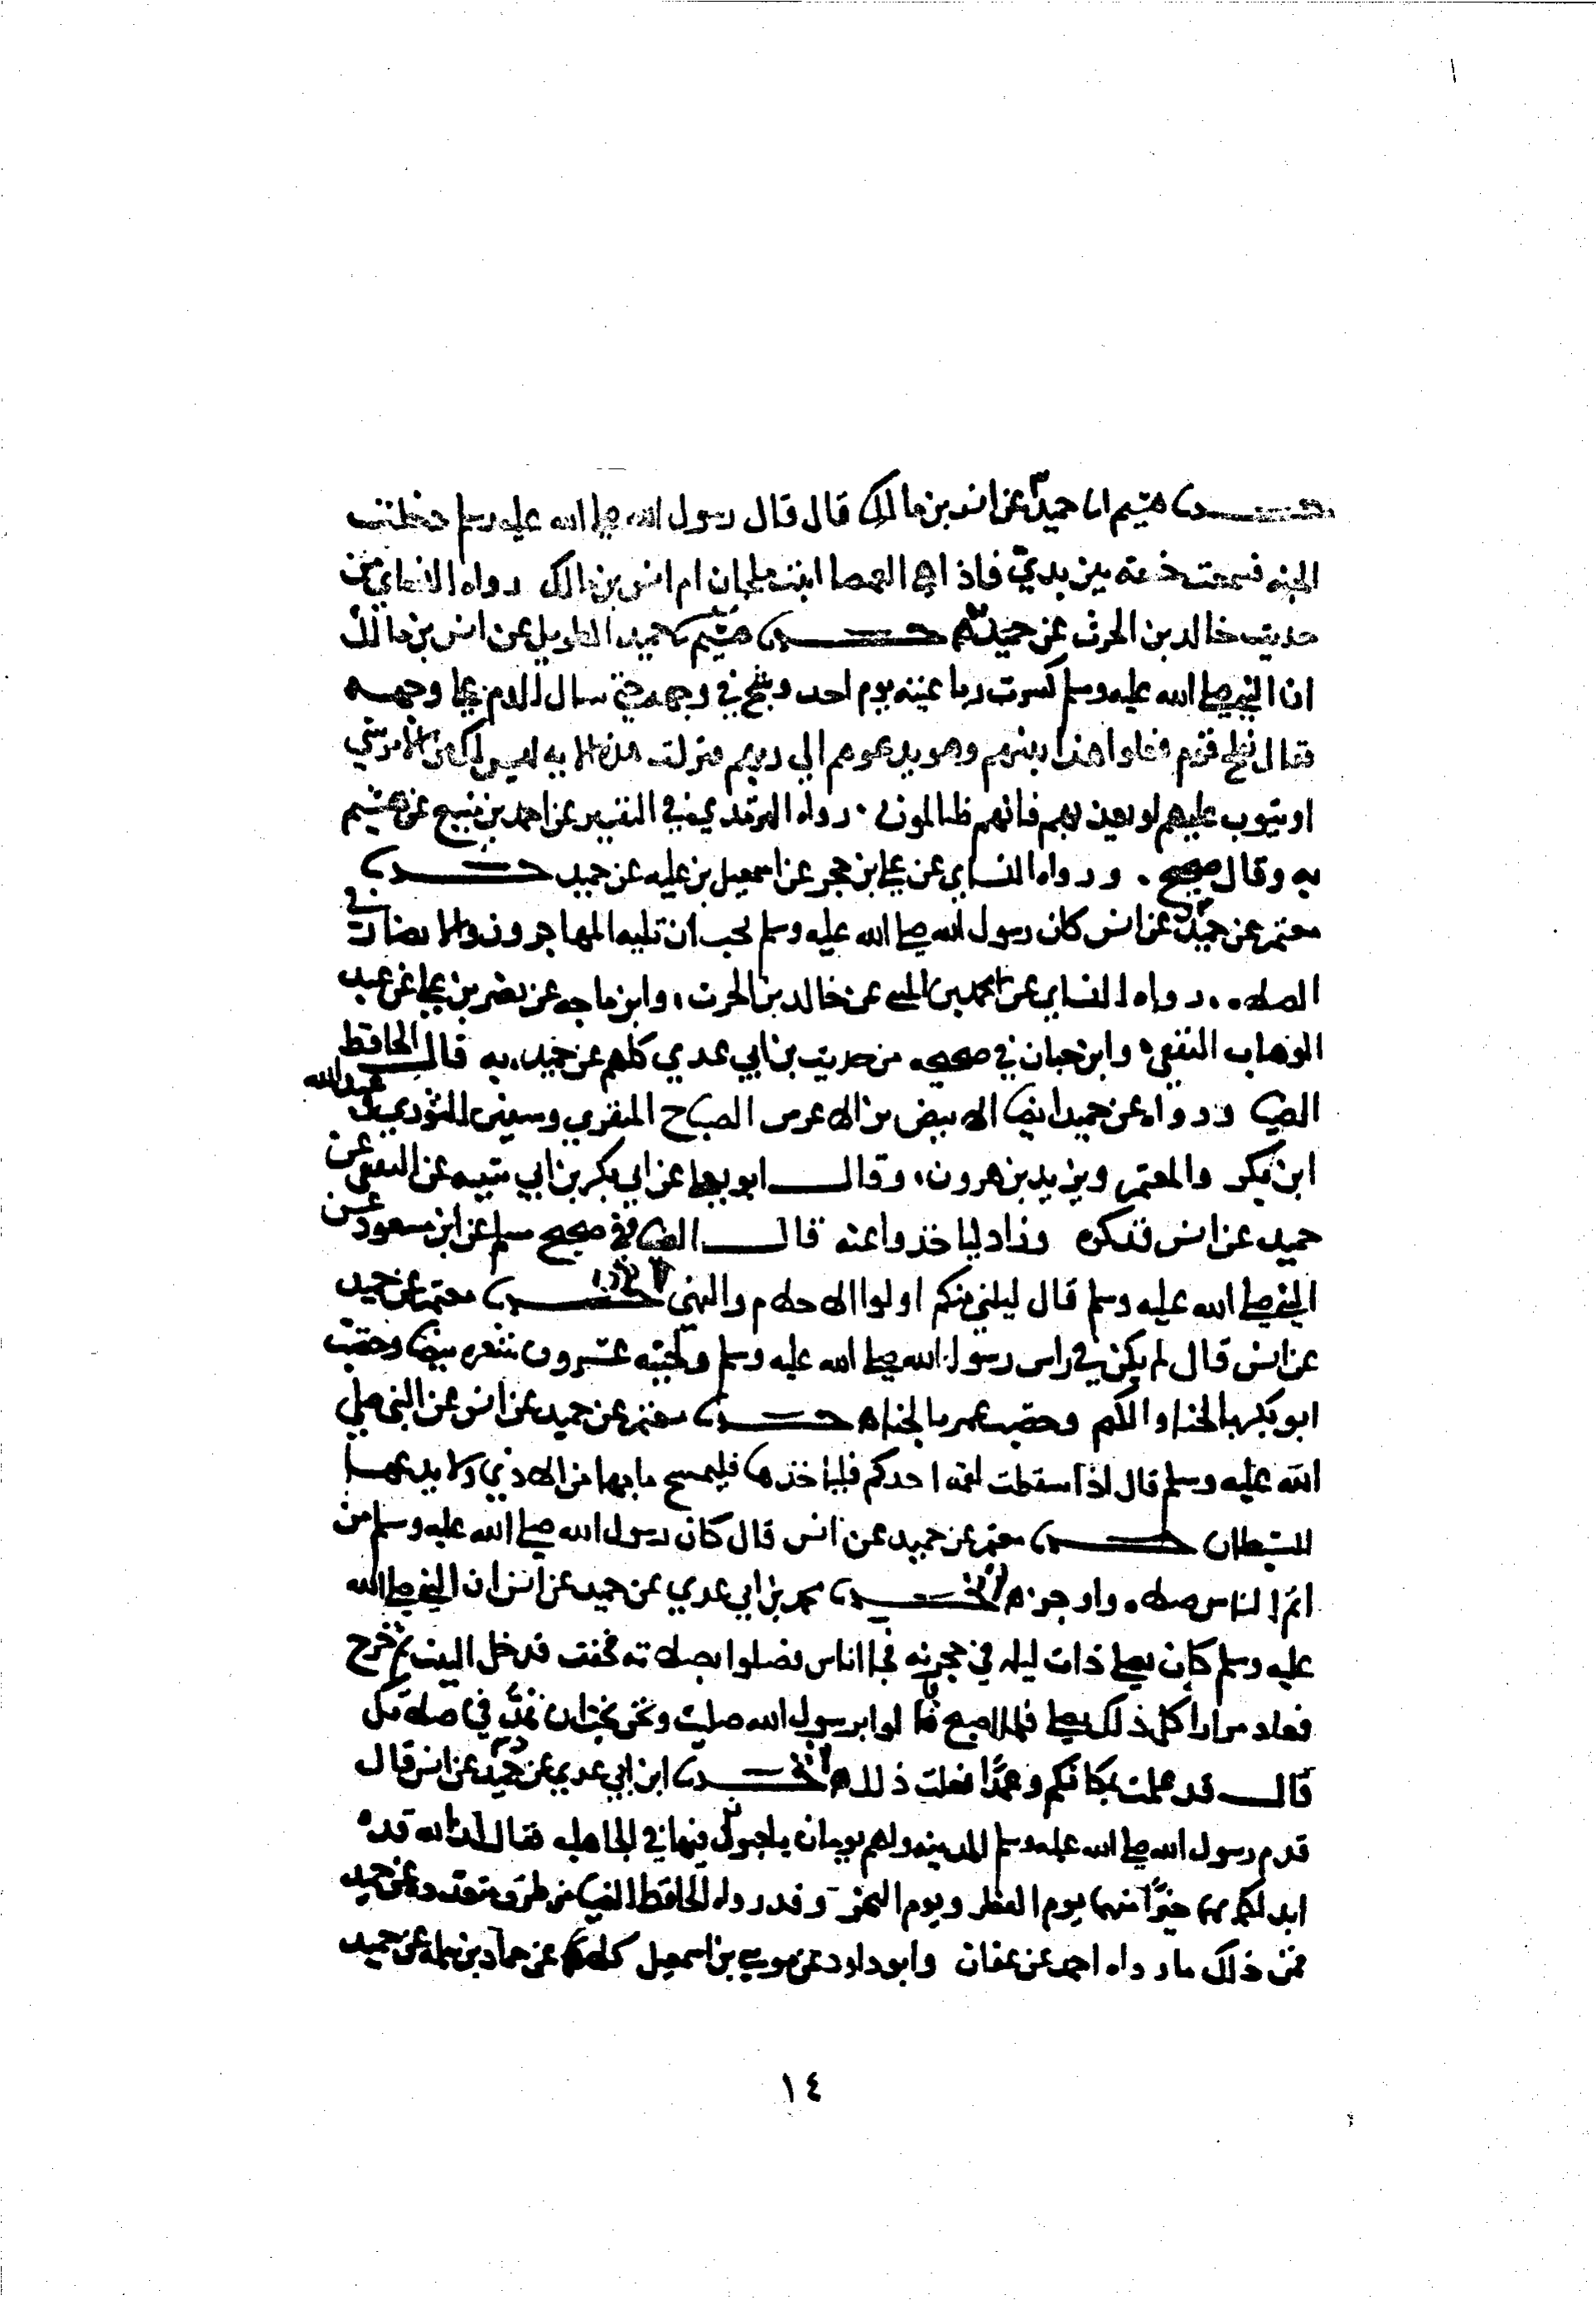 حدثنا هشيم انا حميد عن انس بن مالك قال قال رسول الله صلى الله عليه وسلم دخلت
الجنه فسمعت خشفه بين يدي فاذا هي الغميصا ابنت ملحان ام انس بن مالك رواه النساي من
حديث خالد بن الحرث عن حميد به حدثنا هشيم حميد الطويل عن انس بن مالك
ان النبي صلى الله عليه وسلم كسرت رباعيته يوم احد وشج في وجهه حتى سال الدم على وجهه
فقال كيف يفلح قوم فعلوا هذا بنبيهم وهو يدعوهم الي ربهم فنزلت هذه الايه ليس لك من الامر شي
او يتوب عليهم او يعذبهم فانهم ظالمون . رواه الترمذي في التفسير عن احمد بن منيع عن هشيم
به وقال صحيح . ورواه النساي عن علي بن حجر عن اسمعيل بن عليه عن حميد حدثنا
معتمر عن حميد عن انس كان رسول الله صلى الله عليه وسلم يحب ان تليه المهاجرون والانصار في
الصلاه . رواه النساي عن محمد بن المثنى عن خالد بن الحرث، وابن ماجه عن نصر بن علي عن عبد
الوهاب الثقفي، وابن حبان في صحيحه من حديث بن ابي عدي كلهم عن حميد به قال الحافظ
الضيا ورواه عن حميد ايضا الابيض بن الاغر بن الصباح المنقري وسفين الثوري وعبدالله
ابن بكر والمعتمر ويزيد بن هرون، وقال ابو يعلى عن ابي بكر بن ابي شيبه عن الثقفي عن
حميد عن انس فذكره وزاد لياخذوا عنه قال الضيا في صحيح مسلم عن ابن مسعود عن
النبي صلى الله عليه وسلم قال ليلني منكم اولوا الاحلام والنهى حدثنا معتمر عن حميد
عن انس قال لم يكن في راس رسول الله صلى الله عليه وسلم ولحيته عشرون شعره بيضا وخضب
ابو بكر بالحنا والكتم وخضب عمر بالحناه حدثنا معتمر عن حميد عن انس عن النبي صلى
الله عليه وسلم قال اذا سقطت لقمه احدكم فلياخذها فليمسح ما بها من الاذي ولا يدعها
للشيطان حدثنا معتمر عن حميد عن انس قال كان رسول الله صلى الله عليه وسلم من
اتم الناس صلاه واوجزه حدثنا محمد بن ابي عدي عن حميد عن انس ان النبي صلى الله
عليه وسلم كان يصلي ذات ليله في حجرته فجا اناس فصلوا بصلاته فخفف فدخل البيت ثم خرج
فعاد مرارا كل ذلك يصلي فلما اصبح قالوا يا رسول الله صليت ونحن نحب ان تمد في صلاتك
قال قد علمت بمكانكم وعمدا فعلت ذلك حدثنا ابن ابي عدي عن حميد عن انس قال
قدم رسول الله صلى الله عليه وسلم المدينه ولهم يومان يلعبون فيهما في الجاهليه فقال ان الله قد
ابدلكم بهما خيرا منهما يوم الفطر ويوم النحر وقد رواه الحافظ الضيا من طرق متعدده عن حميد
فمن ذلك ما رواه احمد عن عفان وابو داود عن موسى بن اسمعيل كلاهما عن حماد بن سلمه عن حميد
١٤